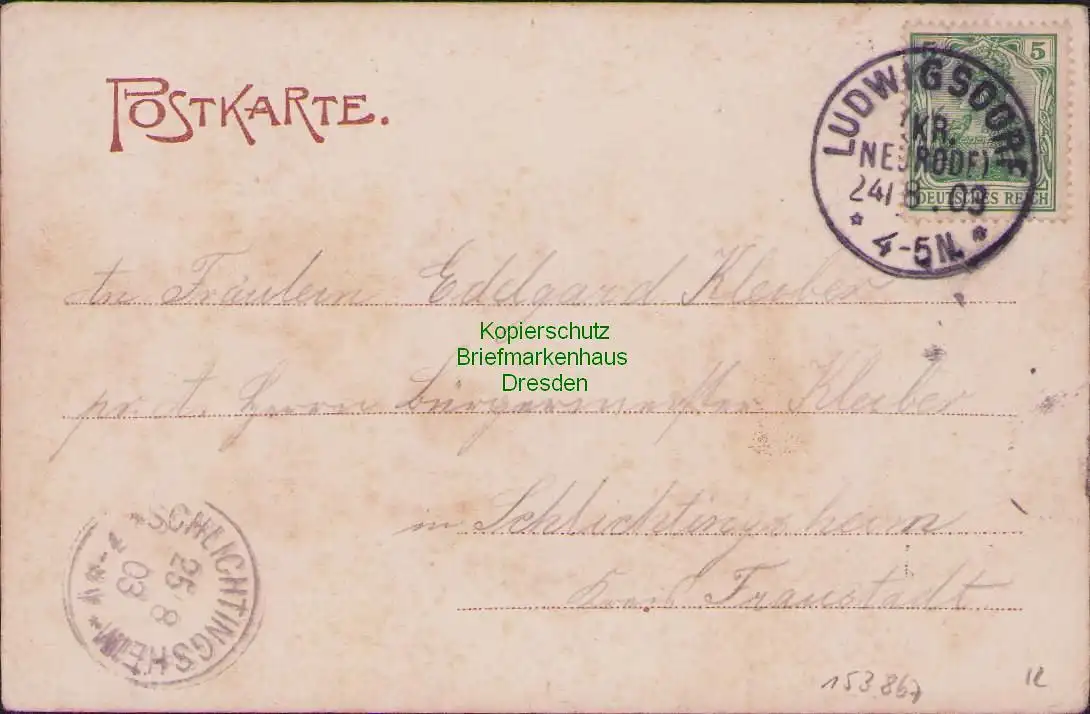 POSTKARTE.
5 5
LUDWIGSDORF
(KR.
NEURODE)
24/8.03
* 4-5N. *
DEUTSCHES REICH
An Fräulein Edelgard Kleiber
Kopierschutz
Briefmarkenhaus
Dresden
pr. A. Herrn Bürgermeister Kleiber
in Schlichtingsheim
Kreis Fraustadt
*SCHLICHTINGSHEIM*
25 8
03
153 867
12